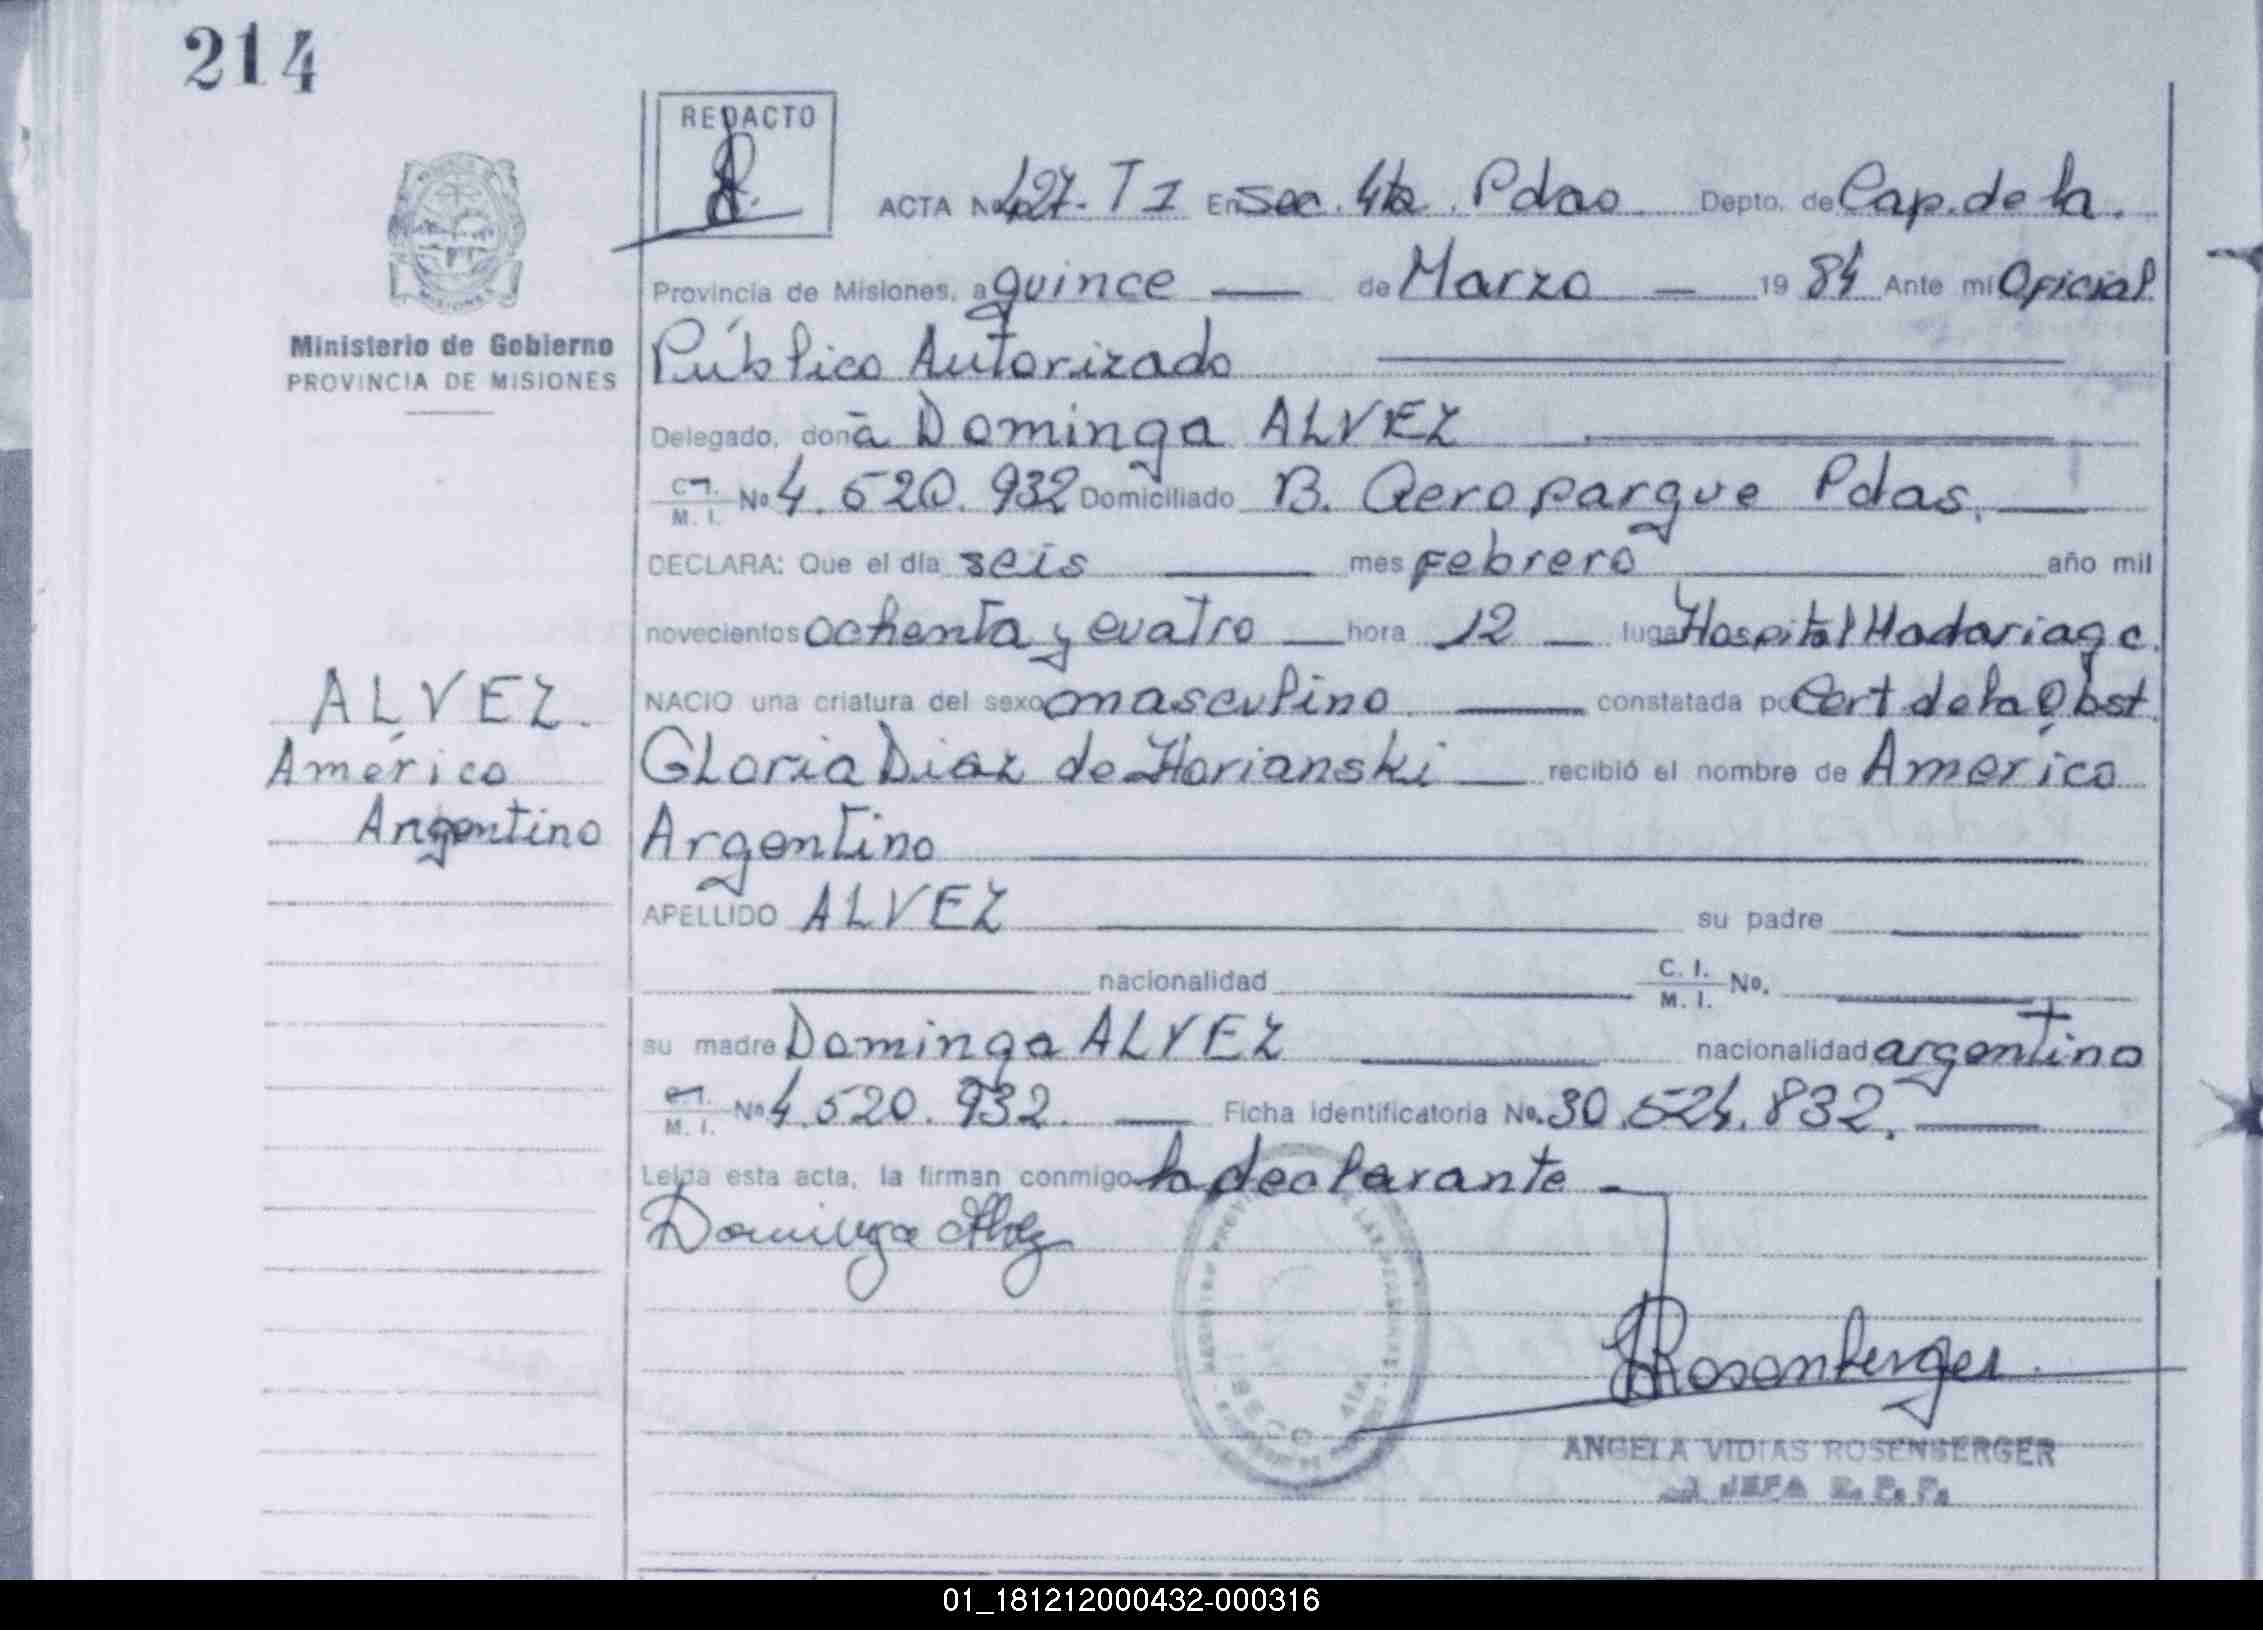 214
REDACTO
ACTA No 427. T I En Sec. 4ta. Pdas Depto. de Cap. de la.
Provincia de Misiones, a quince — de Marzo — 19 84 Ante mi Oficial
Ministerio de Gobierno
PROVINCIA DE MISIONES
Público Autorizado
Delegado, doña Dominga ALVEZ
C.I. M. I. No 4.520.932 Domiciliado B. Aeroparque Pdas.
DECLARA: Que el día seis mes Febrero año mil
novecientos ochenta y cuatro hora 12 lugar Hospital Madariaga c.
NACIO una criatura del sexo masculino constatada por Cert de la Obst.
Gloria Diaz de Horianski recibió el nombre de Américo
Argentino
ALVEZ.
Américo
Argentino
APELLIDO ALVEZ su padre
nacionalidad C. I. M. I. No.
su madre Dominga ALVEZ nacionalidad argentino
C.I. M. I. No 4.520.932. Ficha identificatoria No. 30.524.832.
Leída esta acta, la firman conmigo la declarante
Dominga Alvez
Rosenberger
ANGELA VIDIAS ROSENBERGER
JEFA R. P. P.
01_181212000432-000316